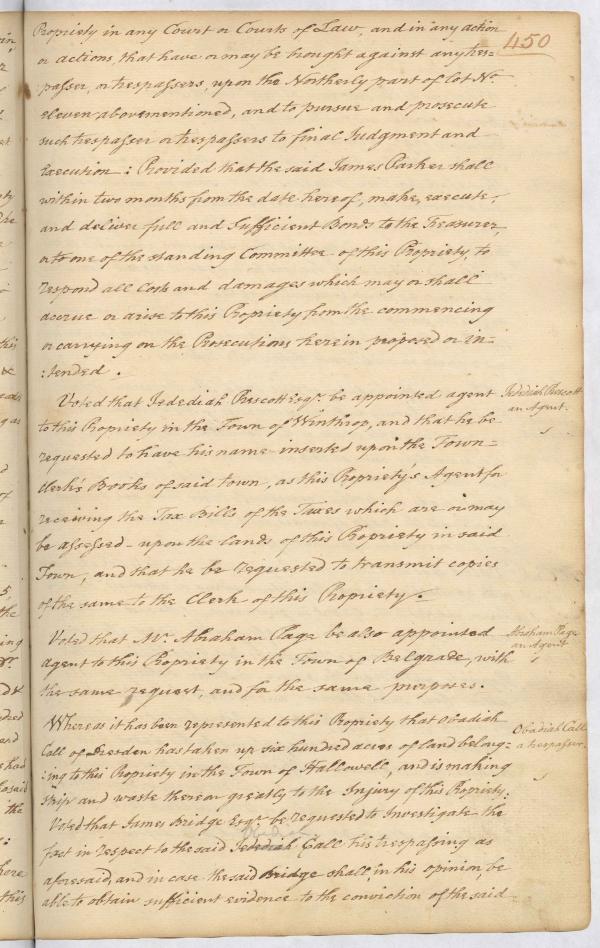 450
Propriety in any Court or Courts of Law, and in any action
or actions, that have or may be brought against any tres=
passer, or trespassers, upon the Northerly part of Lot No.
eleven abovementioned, and to pursue and prosecute
such trespasser or trespassers to final Judgment and
Execution: Provided that the said James Parker shall
within two months from the date hereof, make, execute,
and deliver full and Sufficient Bonds to the Treasurer,
or to one of the standing Committee of this Propriety, to
respond all Costs and damages which may or shall
accrue or arise to this Propriety from the commencing
or carrying on the Prosecutions herein proposed or in=
:tended.
Voted that Jedediah Prescott Esqr. be appointed agent
to this Propriety in the Town of Winthrop, and that he be
requested to have his name inserted upon the Town=
Clerk's Books of said town, as this Propriety's Agent for
receiving the Tax Bills of the Taxes which are or may
be assessed upon the lands of this Propriety in said
Town, and that he be requested to transmit copies
of the same to the Clerk of this Propriety.
Jedediah Prescott
an Agent.
Voted that Mr. Abraham Page be also appointed
agent to this Propriety in the Town of Belgrade, with
the same request, and for the same purposes.
Abraham Page
an Agent
Whereas it has been represented to this Propriety that Obadiah
Call of Dresden has taken up six hundred acres of land belong=
:ing to this Propriety in the Town of Hallowell, and is making
strip and waste thereon greatly to the Injury of this Propriety:
Obadiah Call
a trespasser.
Voted that James Bridge Esqr. be requested to Investigate the
Obadiah
fact in respect to the said Jedidiah Call his trespassing as
aforesaid, and in case the said Bridge shall, in his opinion, be
able to obtain sufficient evidence to the conviction of the said